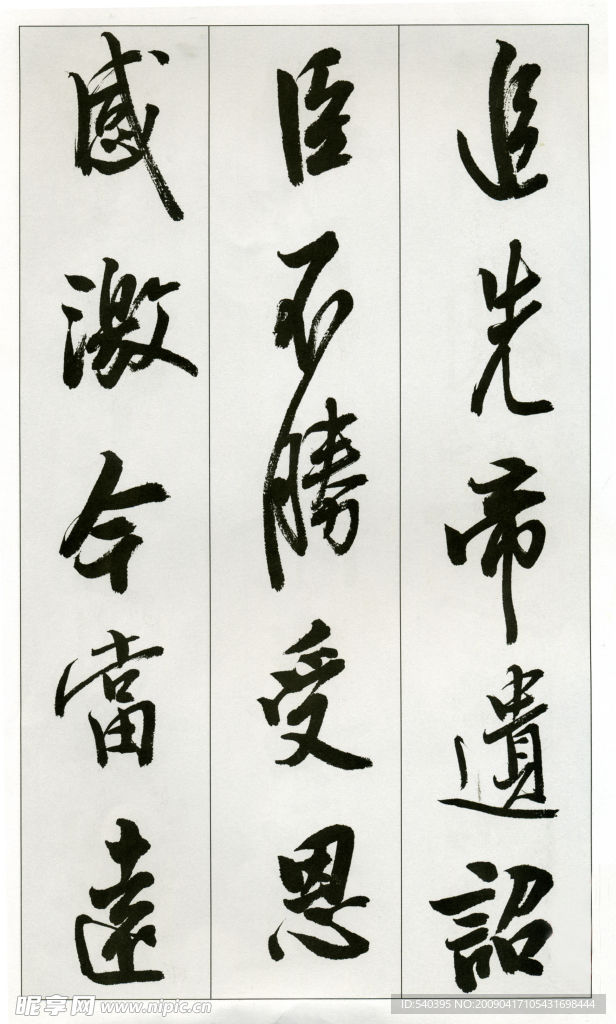 追先帝遺詔
臣不勝受恩
感激今當遠
昵享网 www.nipic.cn
ID:540395 NO:20090417105431698444